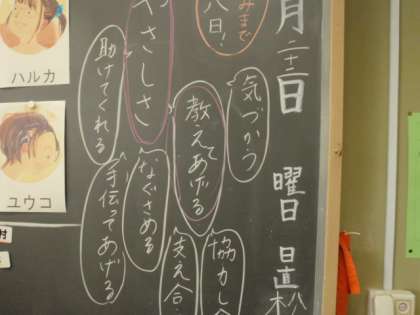 月二十二日　曜日　日直　松
みまで
八日!
気づかう
協力し合
教えてあげる
支え合
やさしさ
なぐさめる
助けてくれる
手伝ってあげる
ハルカ
ユウコ
村